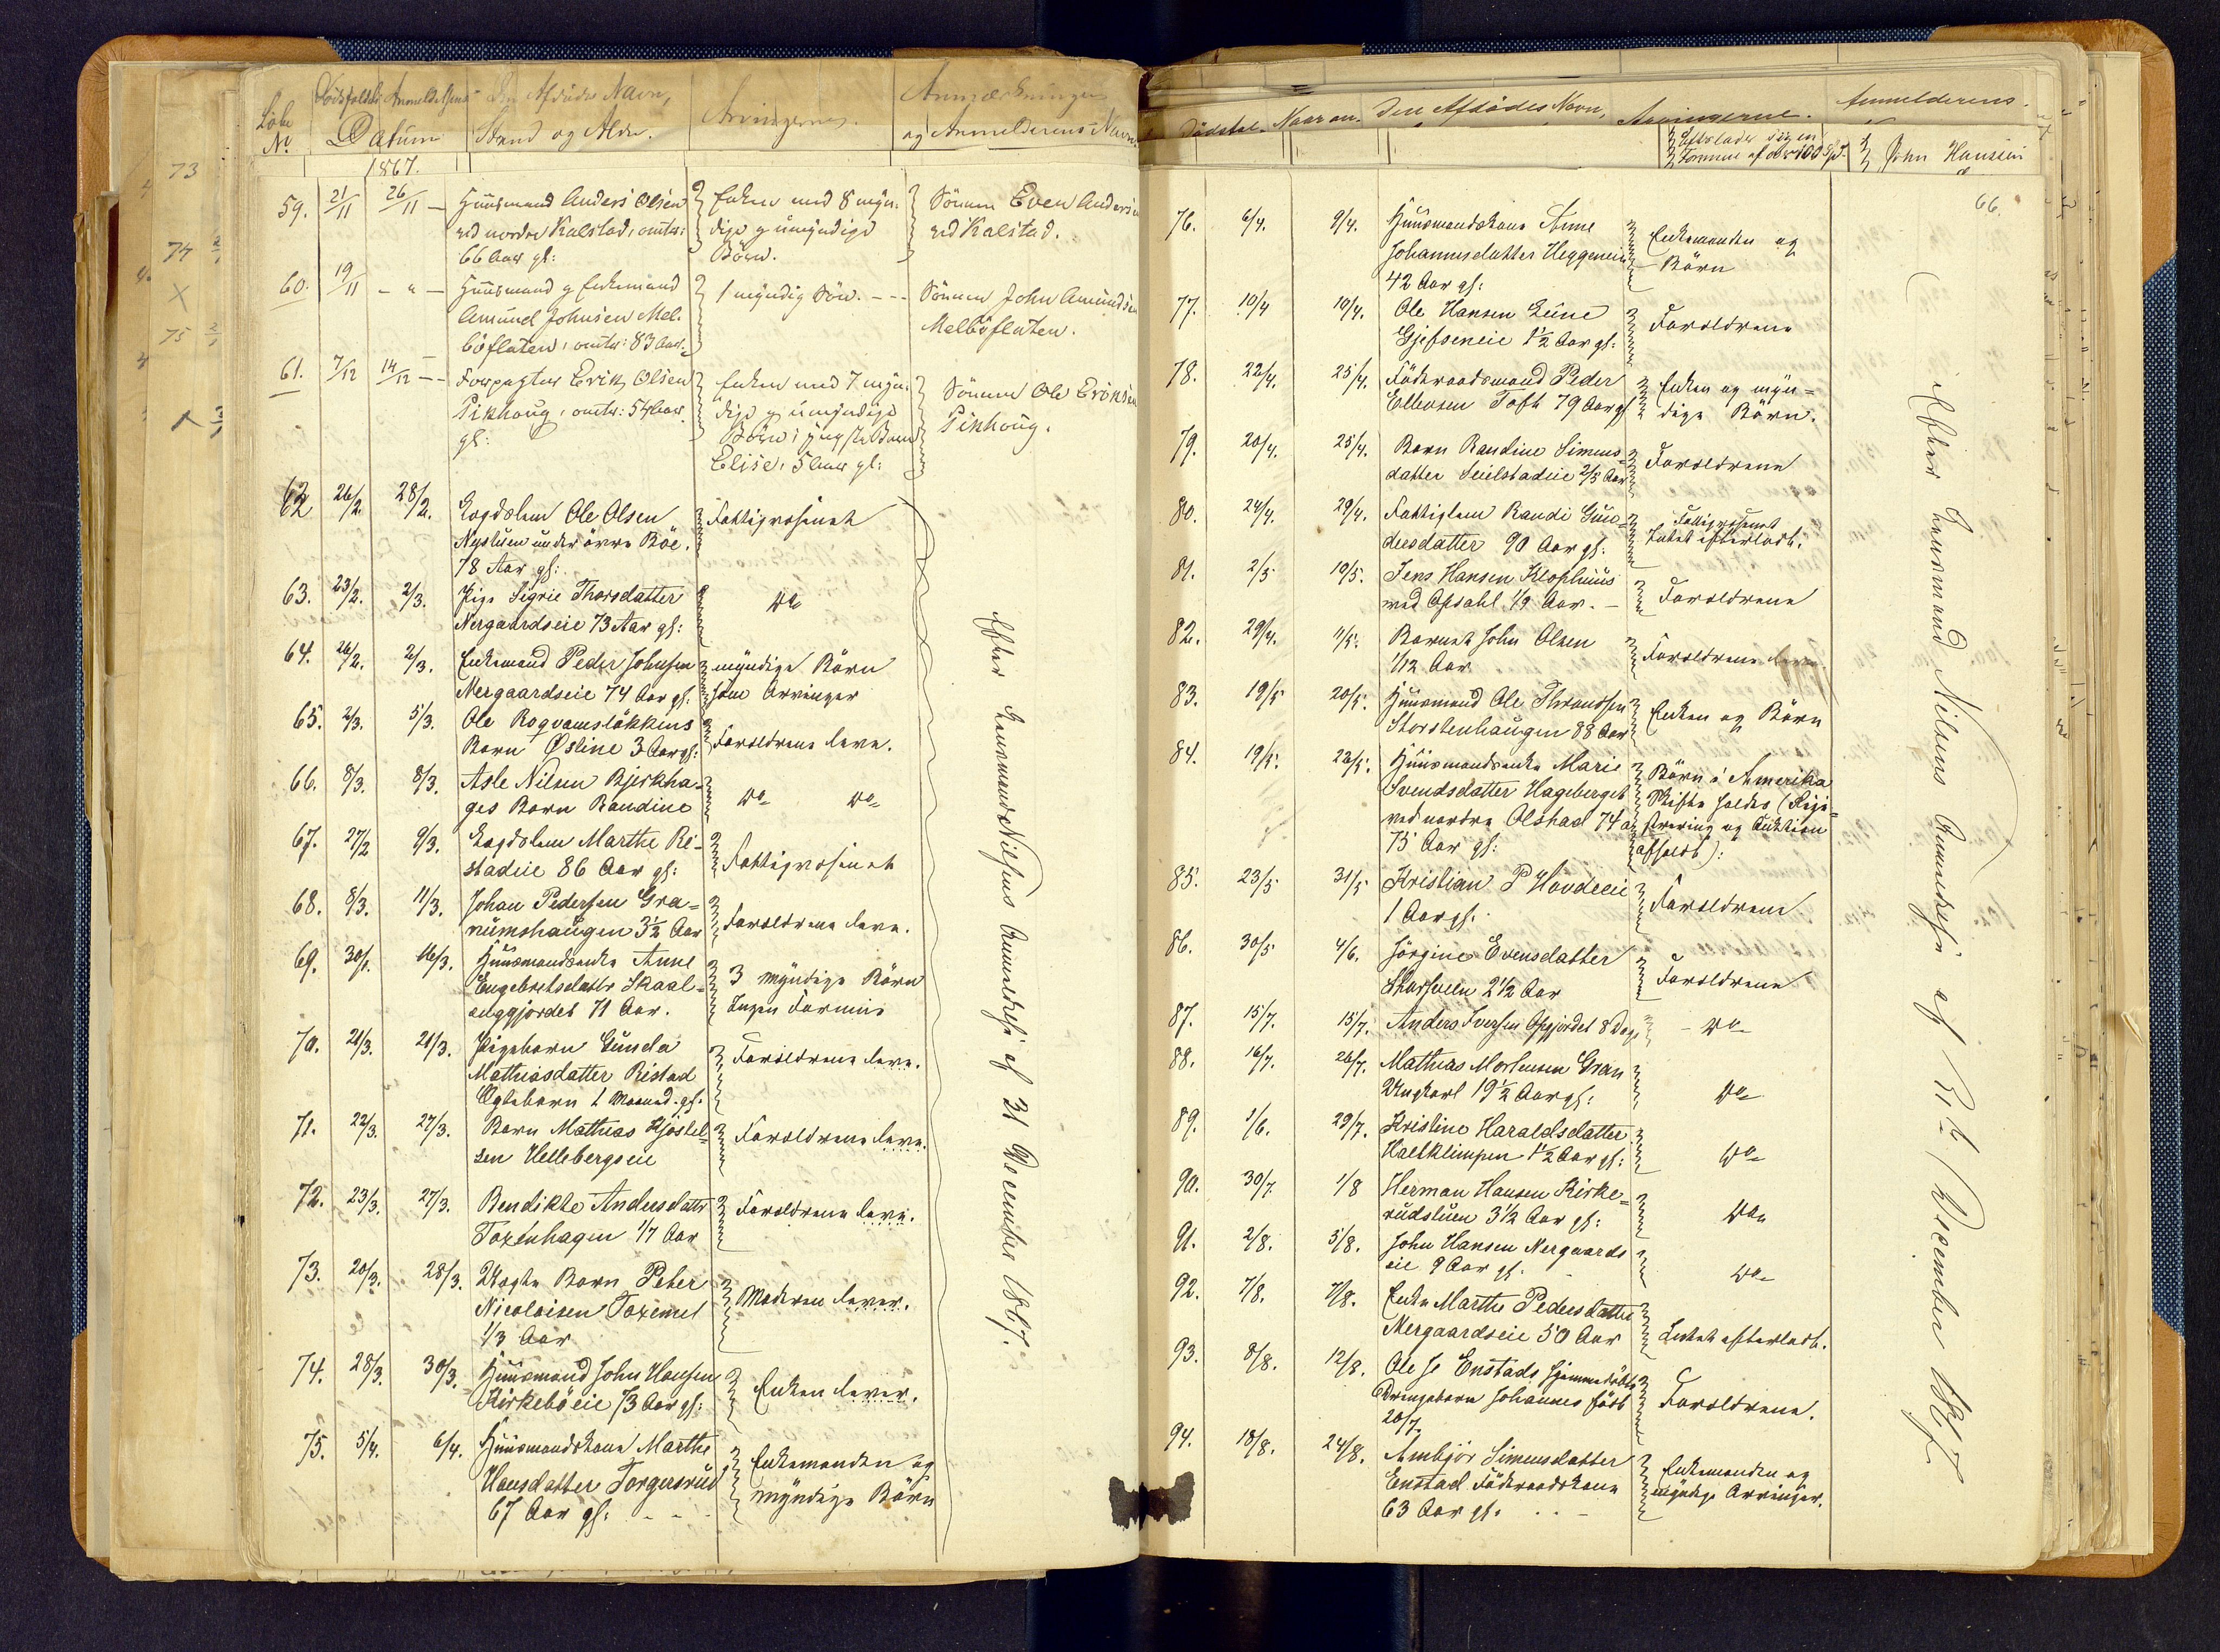 Løbe No
Dødsfaldets Anmeldelsens Datum
Den Afdødes Navn, Stand og Alder.
Arvingerne.
Anmærkninger og Anmelderens Navn.
1867.
59. 21/11 26/11 - Huusmand Anders Olsen
ved nordre Kalstad, omtr:
66 Aar gl:
Enken med 8 myn-
dige og umyndige
Børn.
Sønnen Even Andersen
ved Kalstad.
60. 19/11 - " - Huusmand og Enkemand
Amund Johnsen Mel-
böflaten, omtr: 83 Aar.
1 myndig Søn. - - -
Sønnen John Amundsen
Melböflaten.
61. 7/12 14/12 - - Forpagter Erik Olsen
Pikhoug, omtr: 54 Aar
gl:
Enken med 7 myn-
dige og umyndige
Børn, yngste Barn
Elise, 5 Aar gl:
Sønnen Ole Eriksen
Pikhoug.
62 26/2. 28/2. Lægdslem Ole Olsen
Nystuen under övre Böe.
78 Aar gl:
Fattigvæsenet
63. 23/2. 2/3. Pige Sigrie Thorsdatter
Nergaardseie 73 Aar gl:
Do
64. 26/2. 2/3. Enkemand Peder Johnsen
Mergaardseie 74 Aar gl:
myndige Börn
som Arvinger
65. 2/3. 5/3. Ole Rogvamslökkens
Barn Østine 3 Aar gl:
Forældrene leve.
66. 8/3. 8/3. Asle Nilsen Bjerkha-
ges Barn Randine
Do Do
67. 27/2 9/3. Lægdslem Marthe Ri-
stadeie 86 Aar gl:
Fattigvæsenet
68. 8/3. 11/3. Johan Pedersen Gra-
numshaugen 3½ Aar
Forældrene leve.
69. 30/1. 16/3. Huusmandsenke Anne
Engebretsdatter Skaal-
enggjordet 71 Aar.
3 myndige Börn
Ingen Formue
70. 21/3. 21/3. Pigebarn Gunda
Mathiasdatter Ristad
Ægtebarn 1 Maaned. gl.
Forældrene leve.
71. 22/3. 27/3. Barn Mathias Kjöstel-
sen Hellebergseie
Forældrene leve.
72. 23/3. 27/3. Bendikte Andersdatter
Toxenhagen 1/7 Aar
Forældrene leve.
73. 20/3. 28/3. Uægte Barn Peter
Nicolaisen Toxemel
1/3 Aar
Moderen lever.
74. 28/3. 30/3. Huusmand John Hansen
Kirkeböeie 73 Aar gl:
Enken lever.
75. 5/4. 6/4. Huusmandskone Marthe
Hansdatter Torgersrud
67 Aar gl: - -
Enkemanden og
myndige Börn
After Lensmand Nilsens Anmeldelse af 31 December 1867.
Dödsfal. Naar an. Den Afdödes Navn, Arvingerne. Anmelderens
Efterlader sig en
Formue af over 100 Spd.
John Hansen
66.
76. 6/4. 9/4. Huusmandskone Anne
Johannesdatter Heggeneie
42 Aar gl:
Enkemanden og
Börn
77. 10/4 19/4. Ole Hansen Lune
Gjefseneie 1½ Aar gl:
Forældrene
78. 22/4. 25/4. Föderaadsmand Peder
Ellevsen Toft 79 Aar gl
Enken og myn-
dige Börn.
79. 20/4. 25/4. Barn Randine Simens-
datter Seielstadeie 2/3 Aar
Forældrene
80. 24/4. 29/4. Fattiglem Randi Gun-
dersdatter 90 Aar gl:
Fattigvæsenet
Intet efterladt.
81. 2/5 19/5. Jens Hansen Klophuus
ved Opdahl 1/9 Aar. -
Forældrene
82. 29/4. 11/5. Barnet John Olsen
1/12 Aar
Forældrene
83. 19/5 20/5. Huusmand Ole Throndsen
Storstenhaugen 88 Aar
Enken og Börn
84. 19/5. 22/5. Huusmandsenke Marie
Svendsdatter Hageberget
ved nordre Olstad 74 a
75 Aar gl:
Börn i Amerika
Skifte holdes (Regi-
strering og Auktion
afholdt):
85. 23/5 31/5 Kristian P Hovdeeie
1 Aar gl.
Forældrene
86. 30/5 4/6. Jörgine Evensdatter
2½ Aar
Forældrene
87. 15/7. 15/7. Anders Iversen Opgjordet 8 Dage
- Do
88. 16/7. 26/7. Mathias Mortensen Gran
Ungkarl 19½ Aar gl:
Do
89. 1/6. 29/7. Kristine Haraldsdatter
Haltklimpen 1½ Aar gl:
Do
90. 30/7. 1/8 Herman Hansen Kirke-
rudstuen 3½ Aar gl:
Do
91. 2/8. 5/8. John Hansen Nergaards
eie 9 Aar gl.
Do
92. 7/8. 7/8. Enke Marthe Pedersdatter
Mergaardseie 50 Aar
Intet efterladt.
93. 8/8. 12/8. Ole J. Enstads hjemmedöbte
Drengebarn Johannes född
20/7
Forældrene.
94. 18/8. 24/8. Ambjör Simensdatter
Enstad Föderaadskone
63 Aar gl.
Enkemanden og
myndige Arvinger.
After Lensmand Nilsens Anmeldelse af 31te December 1867